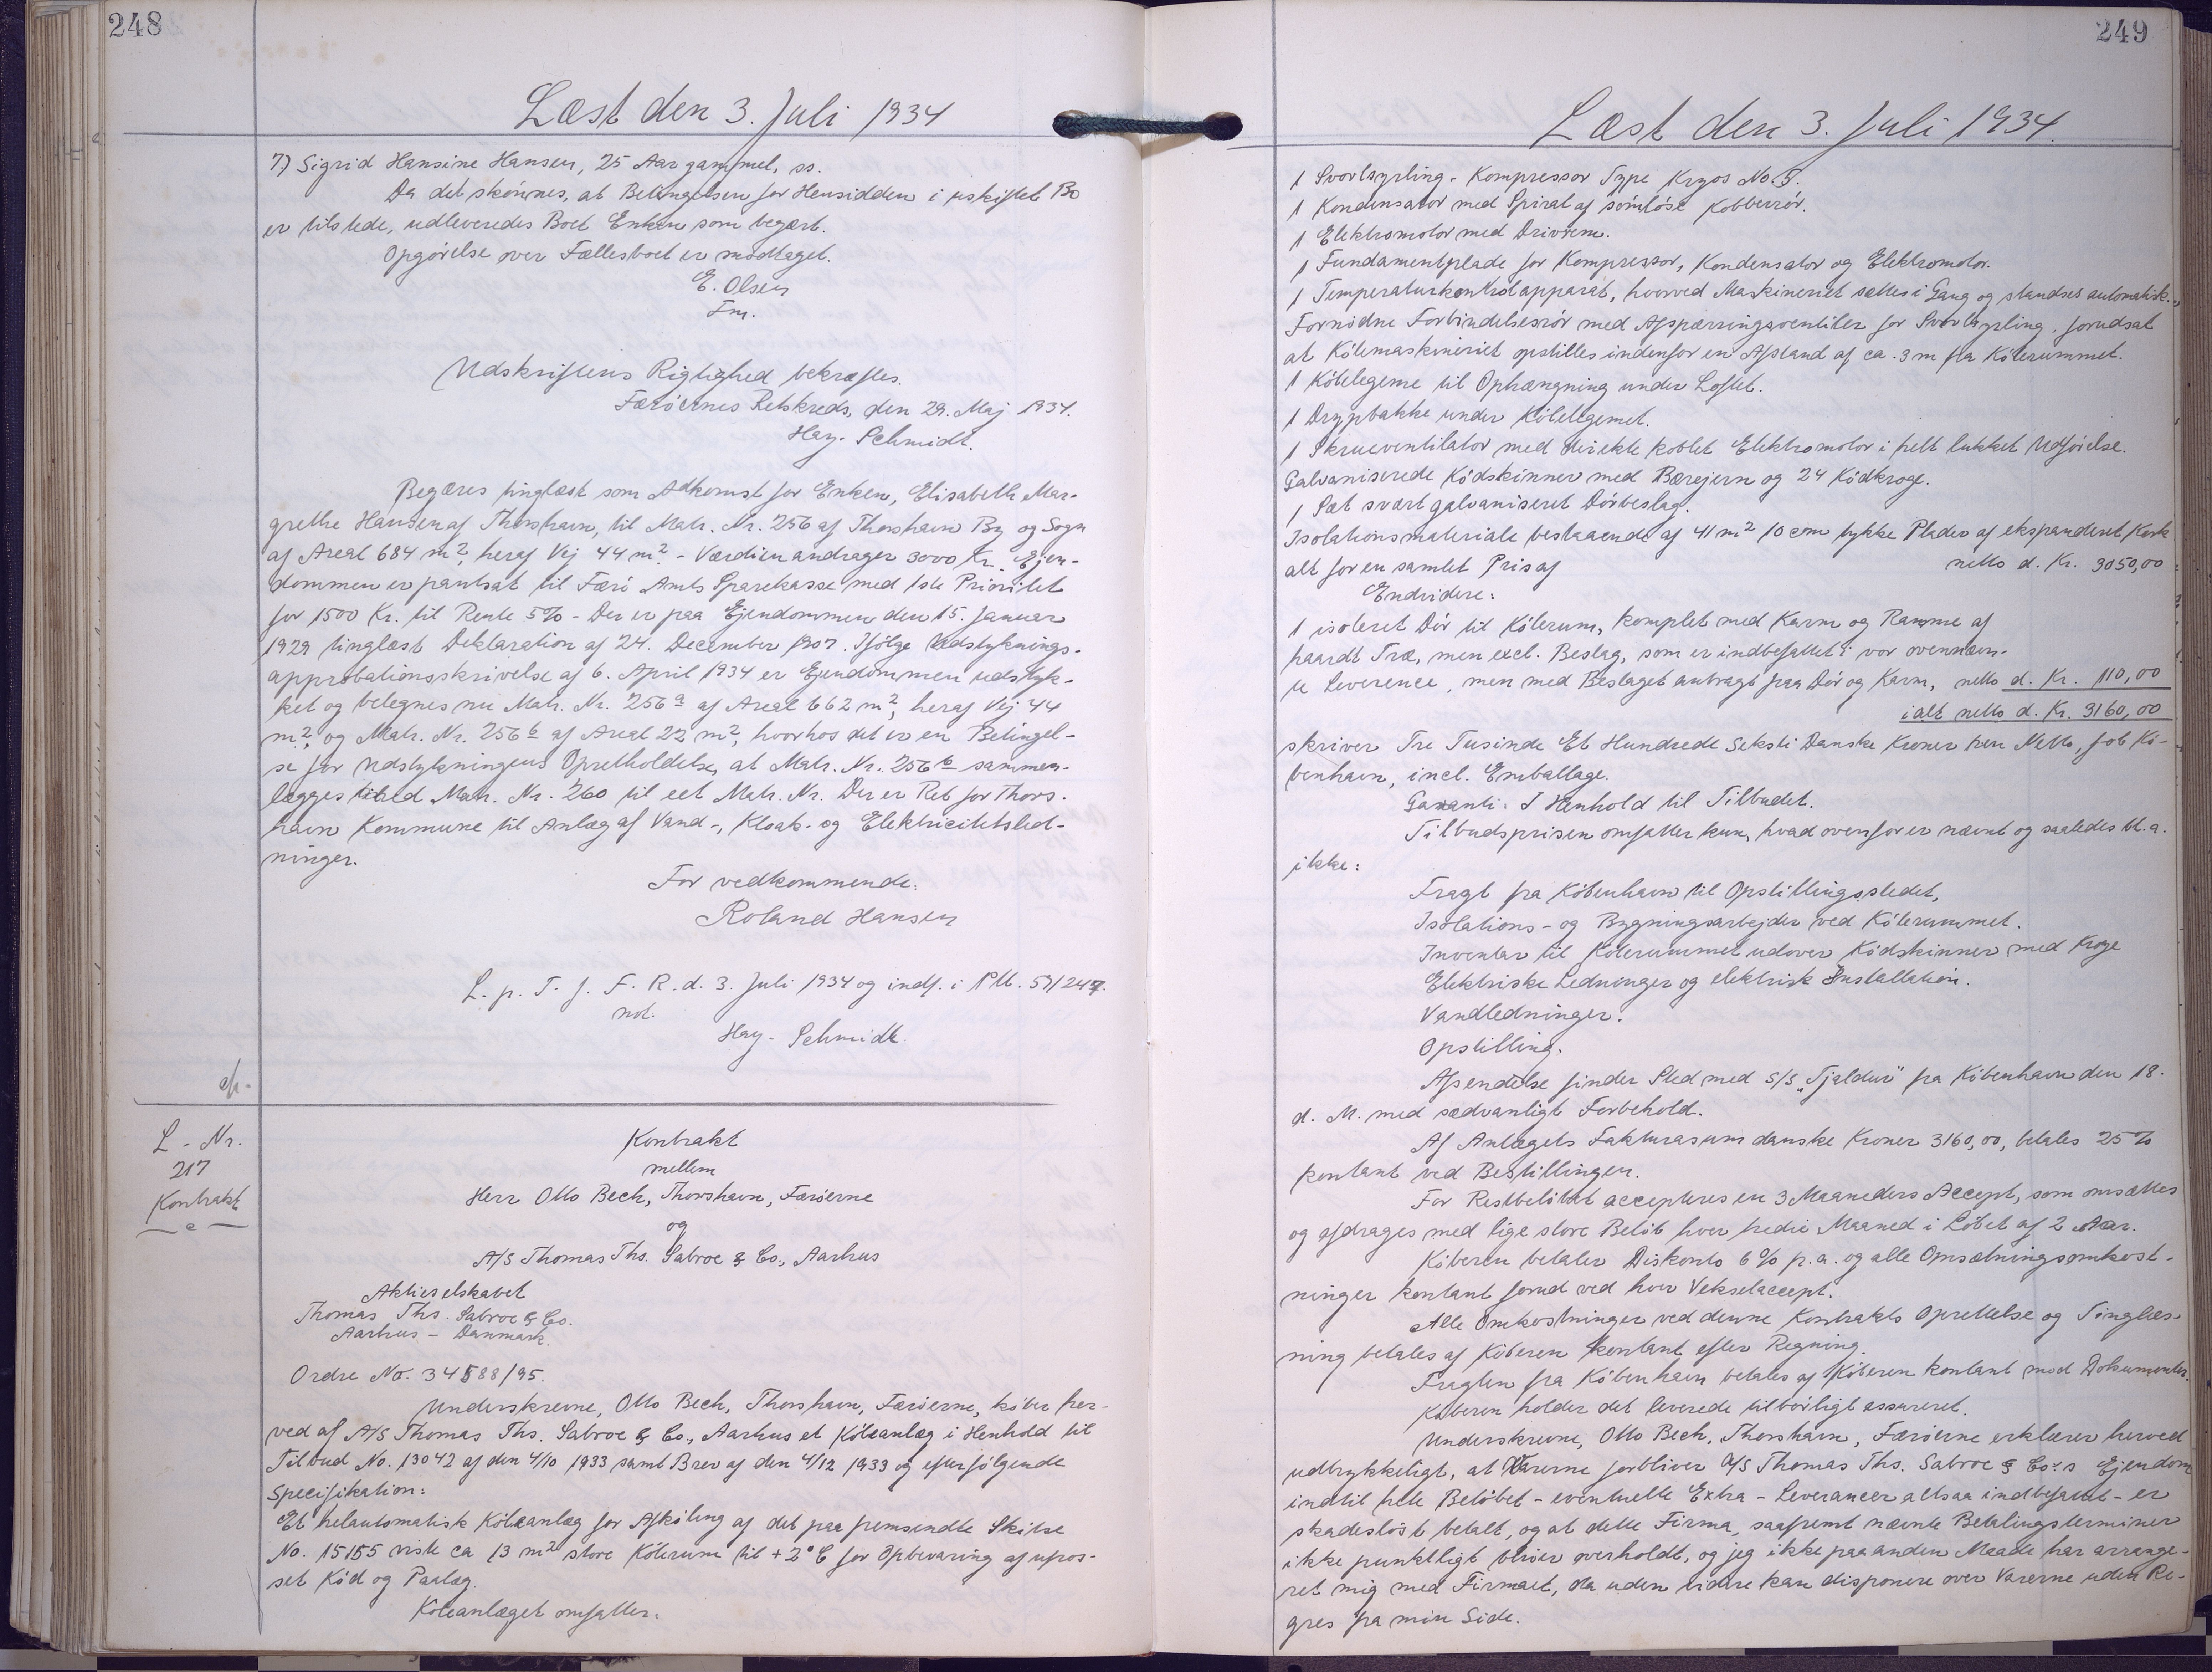 248
Læst den 3. Juli 1934
7) Sigrid Hansine Hansen, 25 Aar gammel, ss.
Da det skönnes, at Betingelsen for Hensidden i uskiftet Bo
er tilstede, udleveredes Boet Enken som begært.
Opgörelse over Fællesboet er modtaget.
E. Olsen
Fm.
Udskriftens Rigtighed bekræftes.
Færöernes Retskreds, den 29. Maj 1934.
Hay-Schmidt.
Begæres tinglæst som Adkomst for Enken, Elisabeth Mar-
grethe Hansen af Thorshavn, til Matr. Nr. 256 af Thorshavn By og Sogn
af Areal 684 m², heraf Vej 44 m². - Værdien andrager 3000 Kr. Ejen-
dommen er pantsat til Færö Amts Sparekasse med 1ste Prioritet
for 1500 Kr. til Rente 5% - Der er paa Ejendommen den 15. Januar
1929 tinglæst Deklaration af 24. December 1907. Ifölge Udstyknings-
approbationsskrivelse af 6. April 1934 er Ejendommen udstyk-
ket og betegnes nu Matr. Nr. 256a af Areal 662 m², heraf Vej 44
m², og Matr. Nr. 256b af Areal 22 m², hvorhos det er en Betingel-
se for Udstykningens Opretholdelse, at Matr. Nr. 256b sammen-
lægges med Matr. Nr. 260 til eet Matr. Nr. Der er Ret for Thors-
havn Kommune til Anlæg af Vand-, Kloak- og Elektricitetsled-
ninger.
For vedkommende:
Roland Hansen
L. p. T. f. F. R. d. 3. Juli 1934 og indf. i Ptb. 57/247.
not.
Hay-Schmidt
L - Nr.
217
Kontrakt
Kontrakt
mellem
Herr Otto Bech, Thorshavn, Færöerne
og
A/S Thomas Ths. Sabroe & Co., Aarhus
Aktieselskabet
Thomas Ths. Sabroe & Co.
Aarhus - Danmark.
Ordre No. 34588/95.
Underskrevne, Otto Bech, Thorshavn, Færöerne, köber her-
ved af A/S Thomas Ths. Sabroe & Co., Aarhus et Köleanlæg i Henhold til
Tilbud No. 13042 af den 4/10 1933 samt Brev af den 4/12 1933 og efterfölgende
Specifikation:
Et helautomatisk Köleanlæg for Afköling af det paa fremsendte Skitse
No. 15155 viste ca 13 m² store Kölerum til +2°C for Opbevaring af ufros-
set Köd og Paalæg.
Köleanlæget omfatter:
249
Læst den 3. Juli 1934.
1 Svovlsyrling-Kompressor Type Kryos No. F.
1 Kondensator med Spiral af sömlöse Kobberrör.
1 Elektromotor med Drivrem.
1 Fundamentplade for Kompressor, Kondensator og Elektromotor.
1 Temperaturkontrolapparat, hvorved Maskineriet sættes i Gang og standses automatisk.
Fornödne Forbindelsesrör med Afspærringsventiler for Svovlsyrling, forudsat
at Kölemaskineriet opstilles indenfor en Afstand af ca. 3 m fra Kölerummet.
1 Kölelegeme til Ophængning under Loftet.
1 Drypbakke under Kölelegemet.
1 Skrueventilator med direkte koblet Elektromotor i helt lukket Udförelse.
Galvaniserede Ködskinner med Bærejern og 24 Ködkroge.
1 Sæt svært galvaniseret Dörbeslag.
Isolationsmateriale bestaaende af 41 m² 10 cm tykke Plader af ekspanderet Kork
alt for en samlet Pris af netto d. Kr. 3050,00
Endvidere:
1 isoleret Dör til Kölerum, komplet med Karm og Ramme af
haardt Træ, men excl. Beslag, som er indbefattet i vor ovennævn-
te Leverence, men med Beslaget anbragt paa Dör og Karm, netto d. Kr. 110,00
ialt netto d. Kr. 3160,00
skriver Tre Tusinde Et Hundrede Seksti Danske Kroner ren Netto, fob Kö-
benhavn, incl. Emballage.
Garanti: I Henhold til Tilbudet.
Tilbudsprisen omfatter kun, hvad ovenfor er nævnt og saaledes bl.a.
ikke:
Fragt fra Köbenhavn til Opstillingsstedet,
Isolations- og Bygningsarbejder ved Kölerummet.
Inventar til Kölerummet udover Ködskinner med Kroge
Elektriske Ledninger og elektrisk Installation.
Vandledninger.
Opstilling.
Afsendelse finder Sted med S/S „Tjaldur" fra Köbenhavn den 18.
d. M. med sædvanligt Forbehold.
Af Anlægets Fakturasum danske Kroner 3160,00, betales 25%
kontant ved Bestillingen.
For Restbelöbet accepteres en 3 Maaneders Accept, som omsættes
og afdrages med lige store Belöb hver tredie Maaned i Löbet af 2 Aar.
Köberen betaler Diskonto 6% p.a. og alle Omsætningsomkost-
ninger kontant forud ved hver Vekselaccept.
Alle Omkostninger ved denne Kontrakts Oprettelse og Tinglæs-
ning betales af Köberen kontant efter Regning.
Fragten fra Köbenhavn betales af Köberen kontant mod Dokumenter.
Köberen holder det leverede tilbörligt assureret.
Underskrevne, Otto Bech, Thorshavn, Færöerne erklærer herved
udtrykkeligt, at Varerne forbliver A/S Thomas Ths. Sabroe & Co.'s Ejendom
indtil hele Belöbet - eventuelle Extra-Leverancer altsaa indbefattet - er
skadeslöst betalt, og at dette Firma, saafremt nævnte Betalingsterminer
ikke punktligt bliver overholdt, og jeg ikke paa anden Maade har arrange-
ret mig med Firmaet, da uden videre kan disponere over Varerne uden Re-
gres fra min Side.